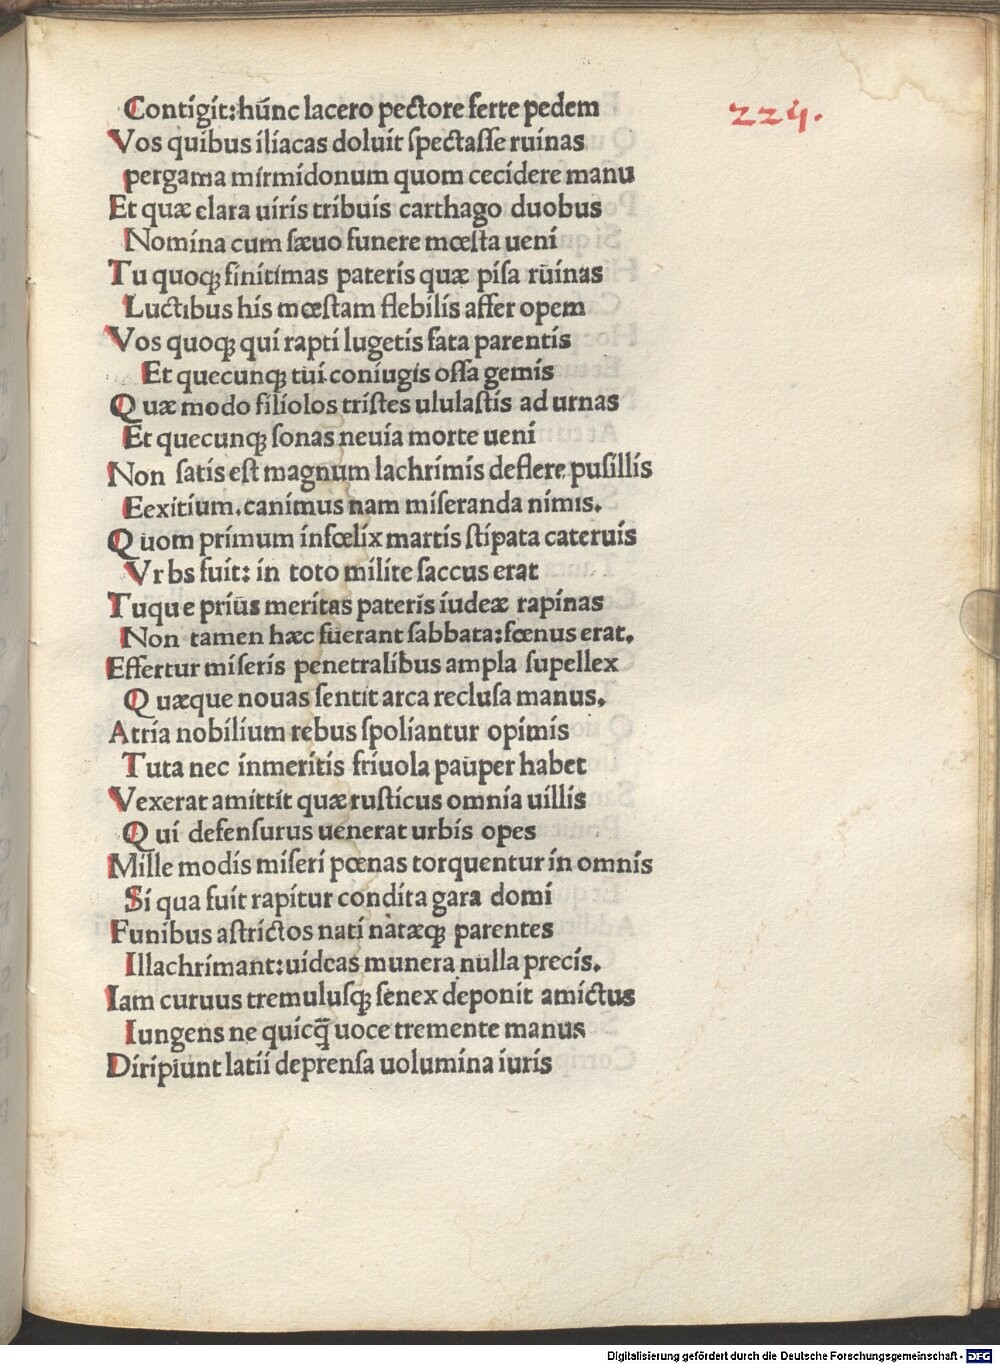 224.
Contigit: hūnc lacero pectore ferte pedem
Vos quibus iliacas doluit ſpectaſſe ruinas
pergama mirmidonum quom cecidere manu
Et quæ clara uiris tribuis carthago duobus
Nomina cum ſæuo funere mœſta ueni
Tu quoqꝫ finitimas pateris quæ piſa rūinas
Luctibus his mœſtam flebilis affer opem
Vos quoqꝫ qui rapti lugetis fata parentis
Et quecunqꝫ tūi coniugis oſſa gemis
Quæ modo filiolos triſtes ululaſtis ad urnas
Et quecunqꝫ ſonas neuia morte ueni
Non ſatis eſt magnum lachrimis deflere puſillis
Eexitium. canimus nam miſeranda nimis.
Quom primum infœlix martis ſtipata cateruis
Vrbs fuit: in toto milite ſaccus erat
Tuque priūs meritas pateris iudeæ rapinas
Non tamen hæc fūerant ſabbata: fœnus erat.
Effertur miſeris penetralibus ampla ſupellex
Quæque nouas ſentit arca recluſa manus.
Atria nobilium rebus ſpoliantur opimis
Tuta nec inmeritis friuola paūper habet
Vexerat amittit quæ ruſticus omnia uillis
Qui defenſurus uenerat urbis opes
Mille modis miſeri pœnas torquentur in omnis
Si qua fuit rapitur condita gara domi
Funibus aſtrictos nati natæqꝫ parentes
Illachrimant: uideas munera nulla precis.
Iam curuus tremuluſqꝫ ſenex deponit amictus
Iungens ne quicq̄ uoce tremente manus
Diripiūnt latii deprenſa uolumina iuris
Digitalisierung gefördert durch die Deutsche Forschungsgemeinschaft - DFG